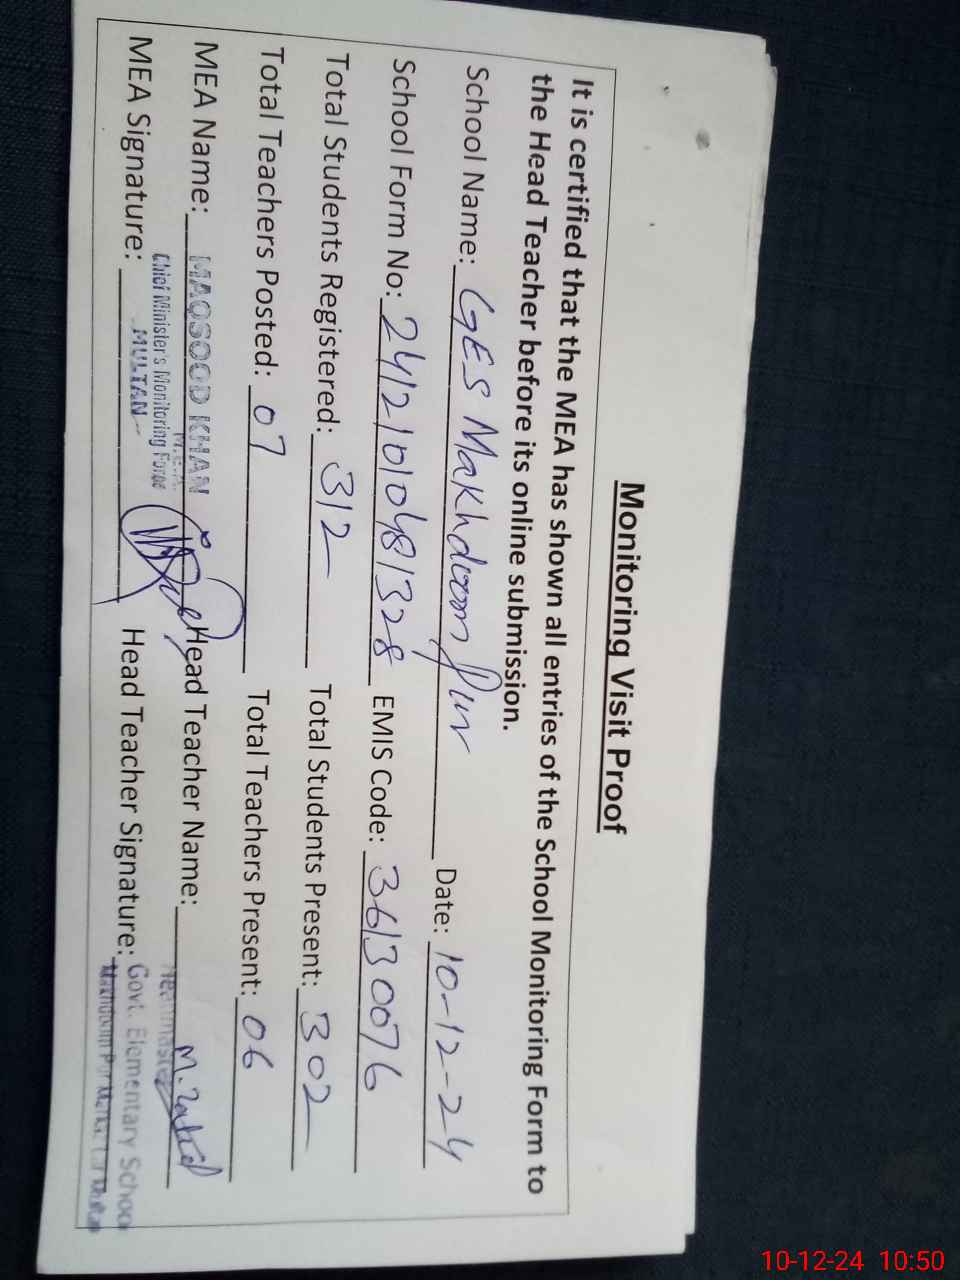 Monitoring Visit Proof
It is certified that the MEA has shown all entries of the School Monitoring Form to
the Head Teacher before its online submission.
School Name: GES Makhdoom Pur Date: 10-12-24
School Form No: 24121010481328 EMIS Code: 36130076
Total Students Registered: 312 Total Students Present: 302
Total Teachers Posted: 07 Total Teachers Present: 06
MEA Name: MAQSOOD KHAN Head Teacher Name:
M.E.A.
Chief Minister's Monitoring Force
MULTAN
MEA Signature: Head Teacher Signature:
Headmaster
Govt. Elementary School
10-12-24 10:50